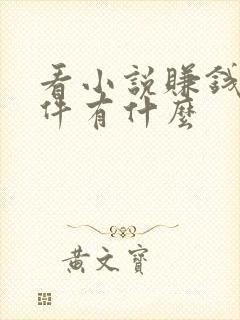 看小説賺錢
件有什麼
黃文寶